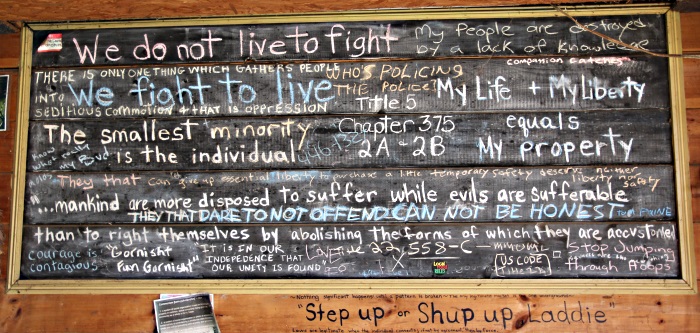 We do not live to fight
My people are destroyed
by a lack of knowledge
compassion catches
THERE IS ONLY ONE THING WHICH GATHERS PEOPLE
INTO
SEDITIOUS COMMOTION & THAT IS OPPRESSION
We fight to live
WHO'S POLICING
THE POLICE?
Title 5
My Life + My Liberty
The smallest minority
is the individual
Chapter 375
2A & 2B
equals
My property
They that can give up essential liberty to purchase a little temporary safety deserve neither
liberty nor
safety
"...mankind are more disposed to suffer while evils are sufferable
THEY THAT DARE TO NOT OFFEND CAN NOT BE HONEST TOM PAINE
than to right themselves by abolishing the forms of which they are accustomed
Courage is
contagious
"Gornisht
Fun Garnisht"
IT IS IN OUR
INDEPEDENCE THAT
OUR UNITY IS FOUND
22, 558-C
US CODE
Stop Jumping
through Hoops
LOCAL
RULES
"Step up or Shup up Laddie"